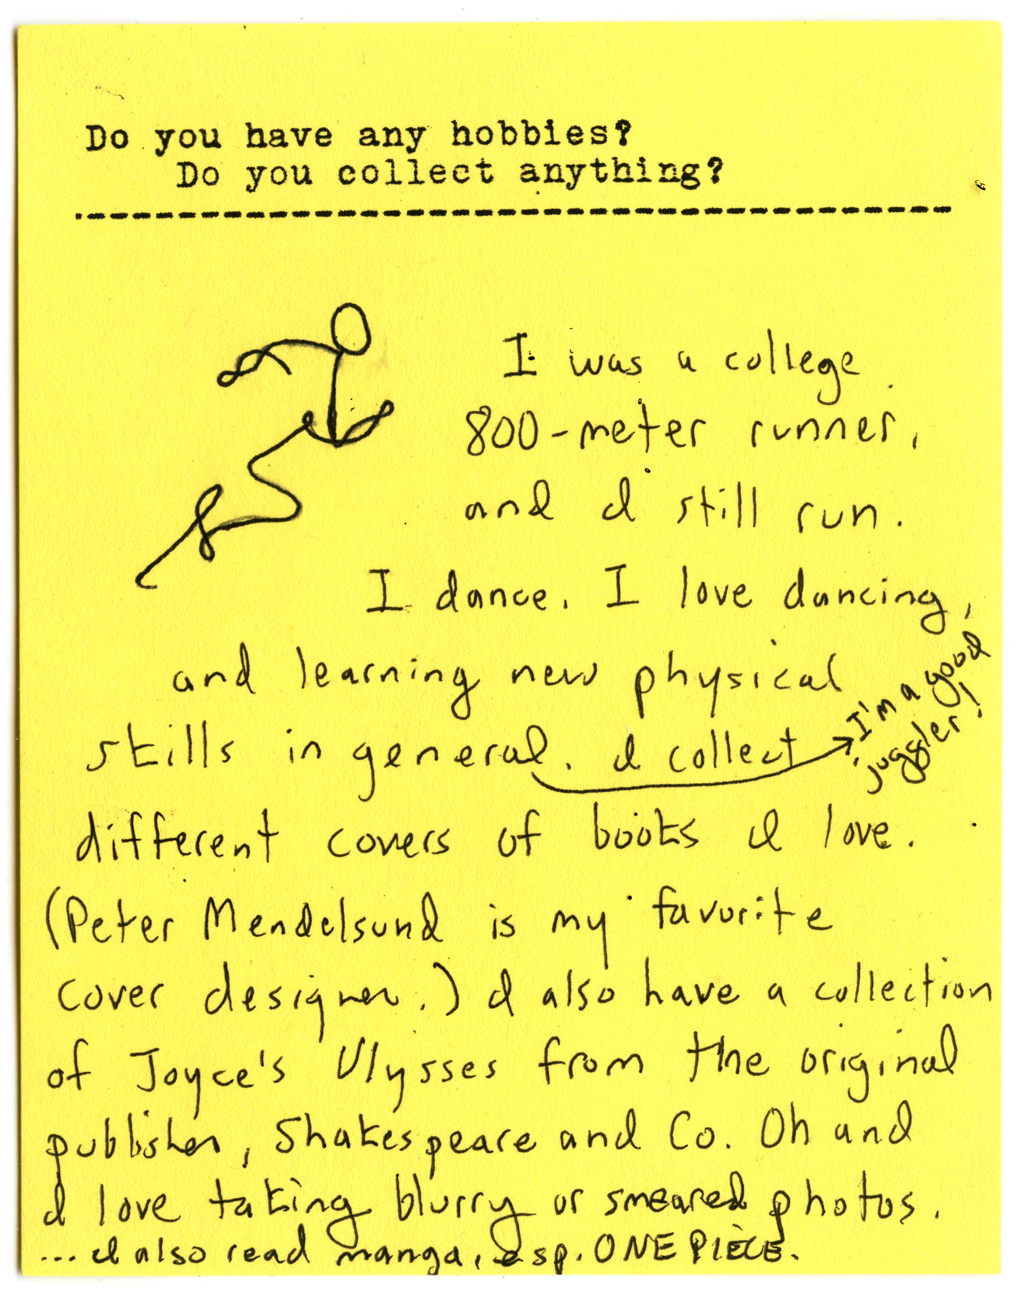 Do you have any hobbies?
Do you collect anything?
I was a college
800-meter runner,
and I still run.
I dance. I love dancing,
and learning new physical
skills in general. I collect
I'm a good
juggler!
different covers of books I love.
(Peter Mendelsund is my favorite
cover designer.) I also have a collection
of Joyce's Ulysses from the original
publisher, Shakespeare and Co. Oh and
I love taking blurry or smeared photos.
... I also read manga, esp. ONE PIÈCE.